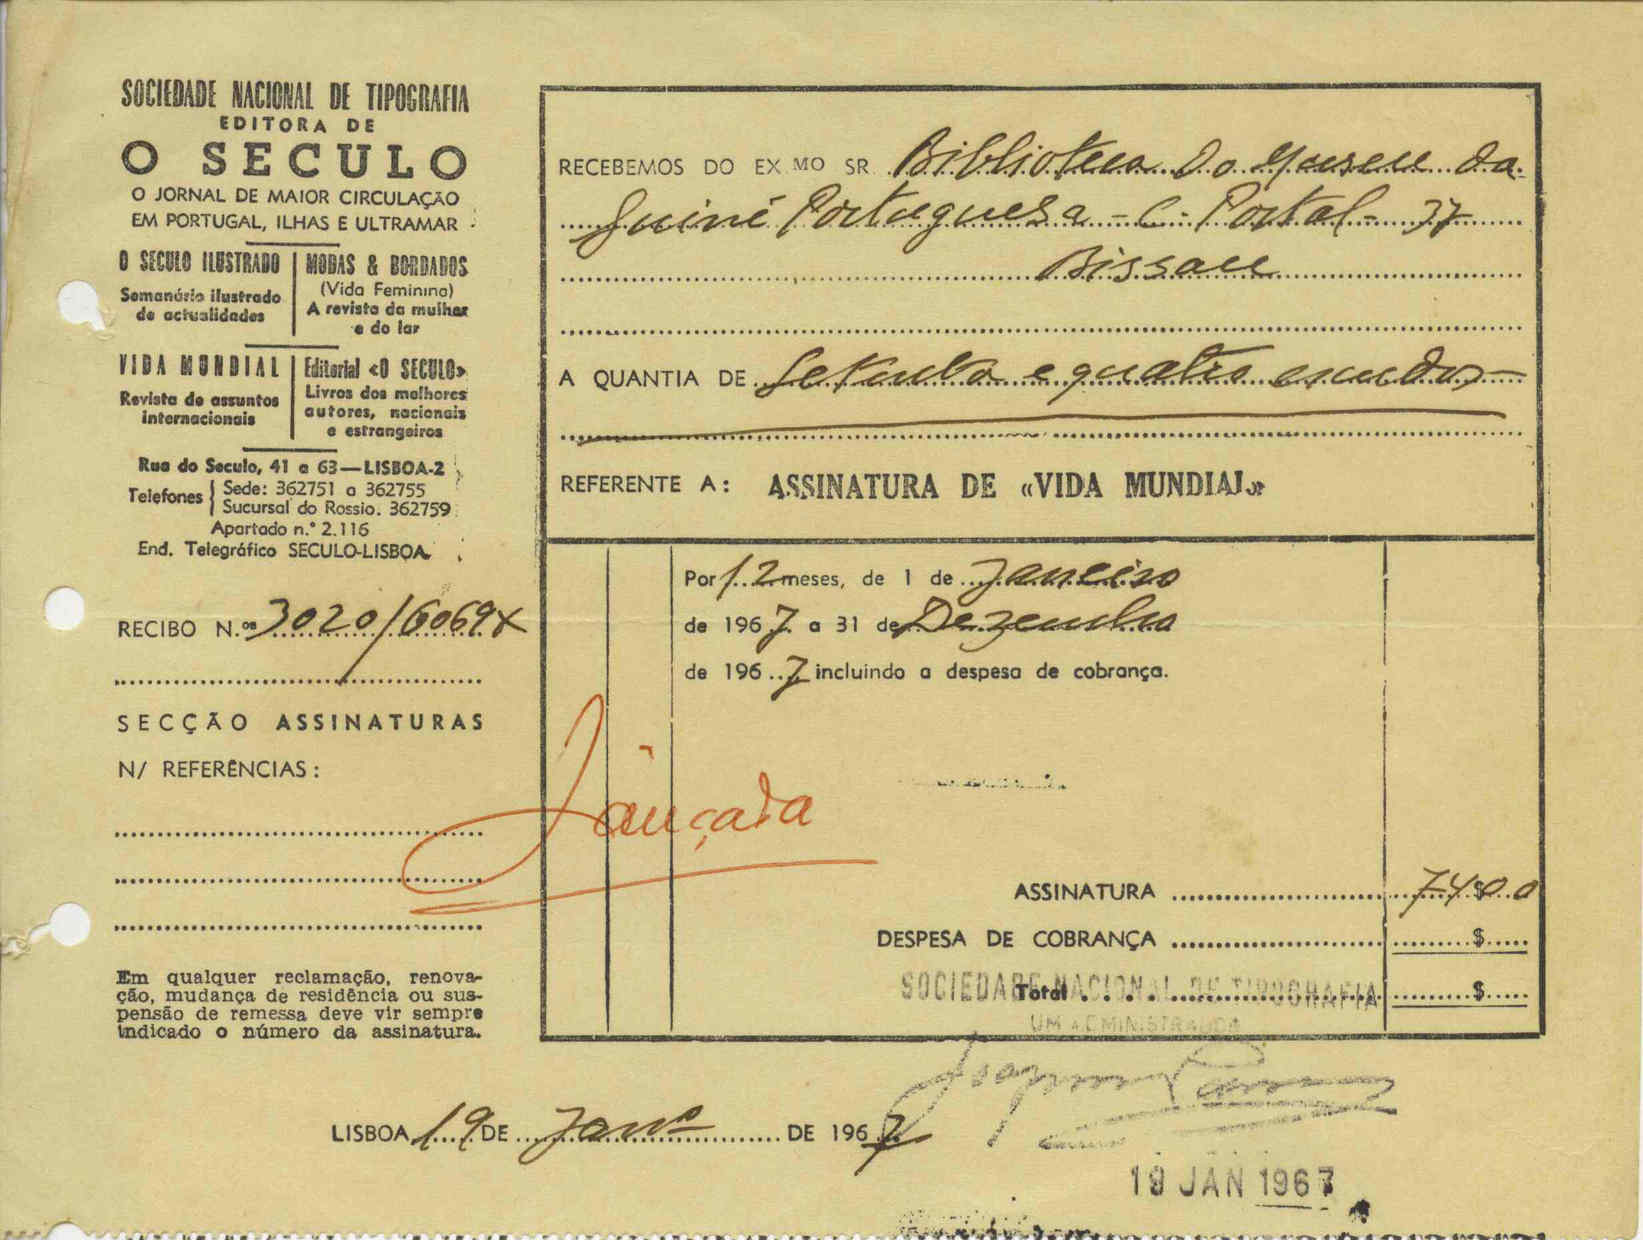 SOCIEDADE NACIONAL DE TIPOGRAFIA
EDITORA DE
O SECULO
O JORNAL DE MAIOR CIRCULAÇÃO
EM PORTUGAL, ILHAS E ULTRAMAR
O SECULO ILUSTRADO
Semanário ilustrado
de actualidades
MODAS & BORDADOS
(Vida Feminina)
A revista da mulher
e do lar
VIDA MUNDIAL
Revista de assuntos
internacionais
Editorial «O SECULO»
Livros dos melhores
autores, nacionais
e estrangeiros
Rua do Seculo, 41 a 63—LISBOA-2
Telefones
Sede: 362751 a 362755
Sucursal do Rossio. 362759
Apartado n.º 2.116
End. Telegráfico SECULO-LISBOA
RECIBO N.os 3020/6069x
SECÇÃO ASSINATURAS
N/ REFERÊNCIAS:
Em qualquer reclamação, renova-
ção, mudança de residência ou sus-
pensão de remessa deve vir sempre
indicado o número da assinatura.
RECEBEMOS DO EX.MO SR. Biblioteca do Museu da
Guiné Portuguesa - C. Postal - 37
Bissau
A QUANTIA DE Setenta e quatro escudos
REFERENTE A: ASSINATURA DE «VIDA MUNDIAL»
Por 12 meses, de 1 de Janeiro
de 1967 a 31 de Dezembro
de 1967 incluindo a despesa de cobrança.
Lançada
ASSINATURA 74$00
DESPESA DE COBRANÇA $
Total $
SOCIEDADE NACIONAL DE TIPOGRAFIA
UM ADMINISTRADOR
LISBOA 19 DE Janº DE 1967
19 JAN 1967